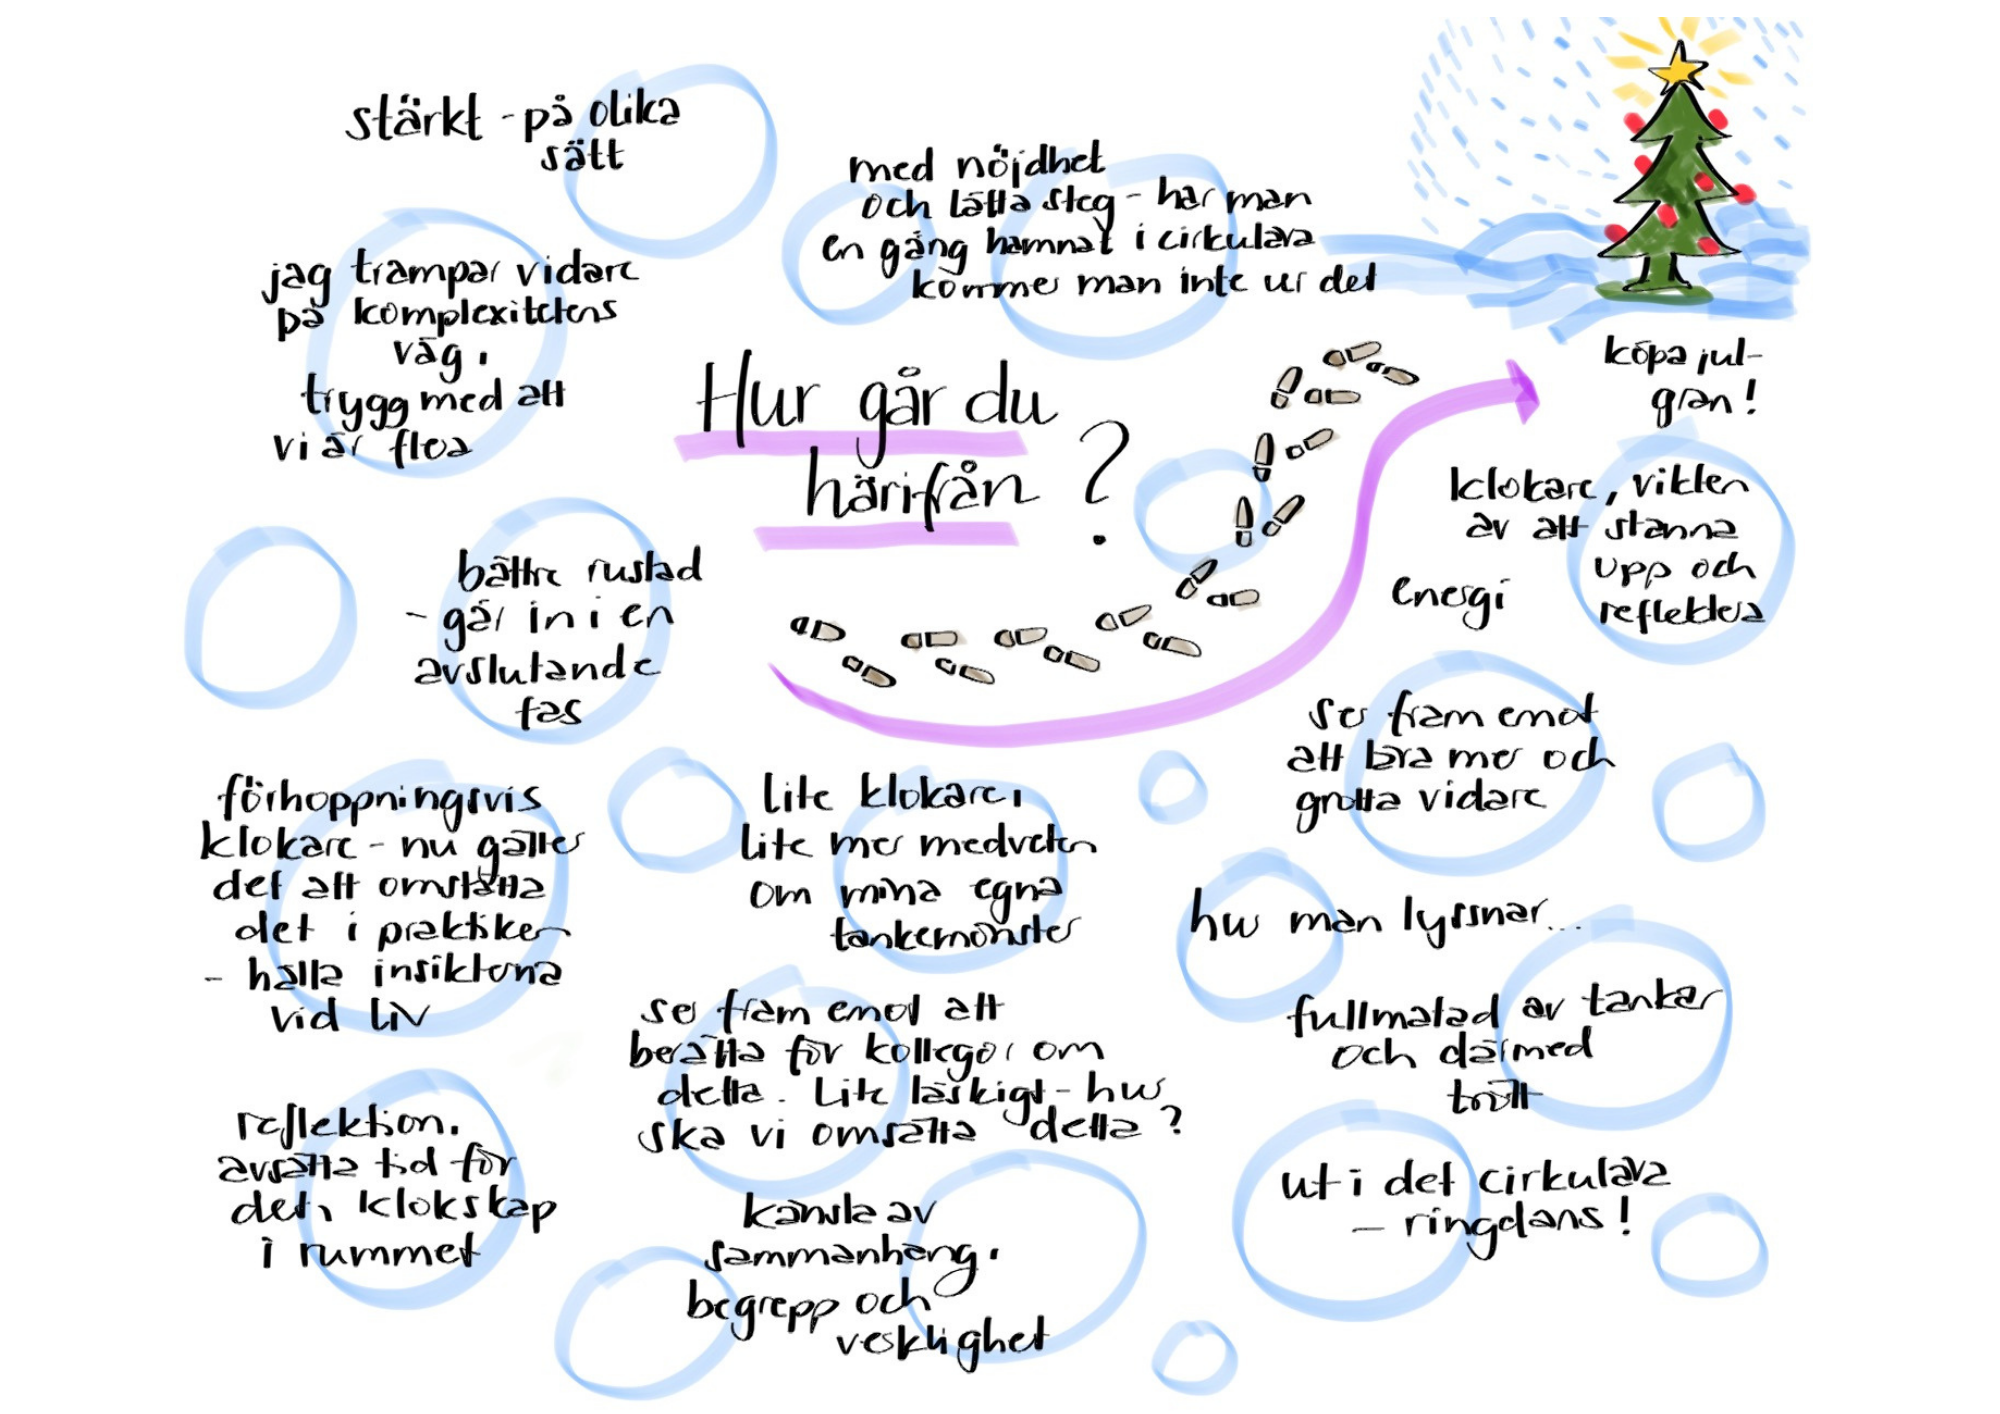 stärkt - på olika
sätt
med nöjdhet
och lätta steg - har man
en gång hamnat i cirkulära
kommer man inte ur det
jag trampar vidare
på komplexitetens
väg,
trygg med att
vi är flera
Hur går du
härifrån ?
köpa jul-
gran!
klokare, vikten
av att stanna
upp och
reflektera
energi
bättre rustad
- går in i en
avslutande
fas
ser fram emot
att bära mer och
grotta vidare
förhoppningsvis
klokare - nu gäller
det att omsätta
det i praktiken
- hålla insikterna
vid liv
lite klokare,
lite mer medveten
om mina egna
tankemönster
hur man lyssnar...
ser fram emot att
berätta för kollegor om
detta. Lite läskigt - hur
ska vi omsätta detta?
fullmatad av tankar
och därmed
trött
reflektion.
avsätta tid för
det, klokskap
i rummet
känsla av
sammanhang,
begrepp och
verklighet
ut i det cirkulära
- ringdans!